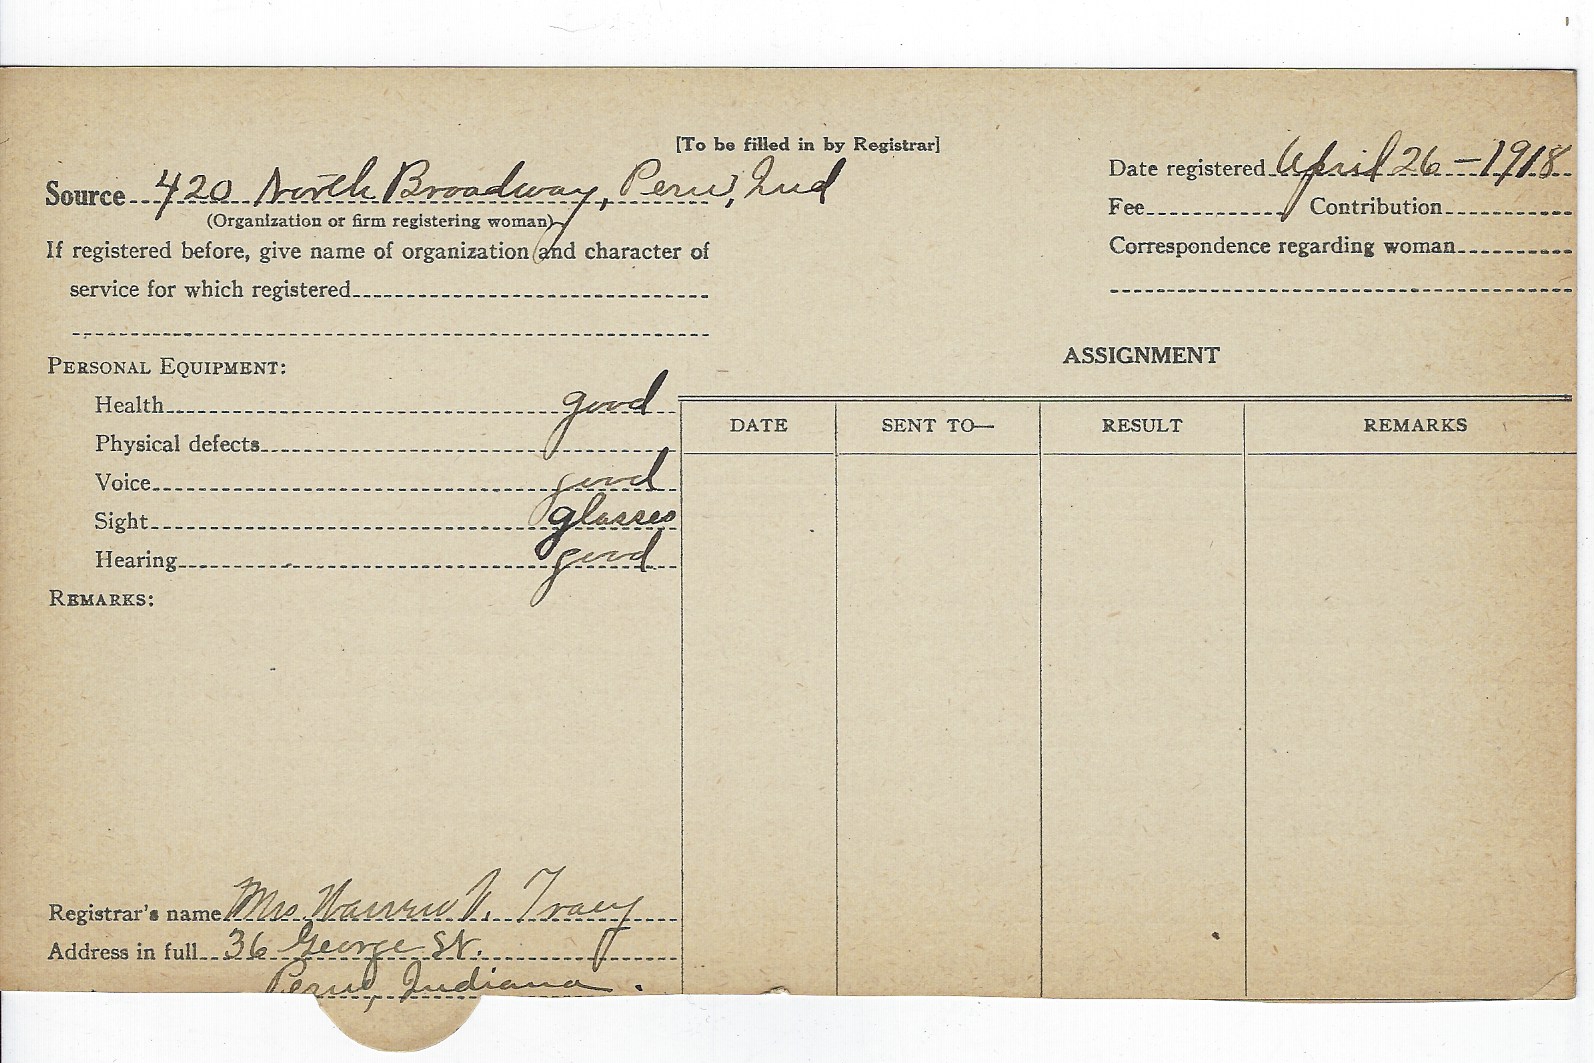 [To be filled in by Registrar]
Source 420 North Broadway, Peru, Ind
(Organization or firm registering woman)
If registered before, give name of organization and character of
service for which registered
Date registered April 26 - 1918
Fee Contribution
Correspondence regarding woman
PERSONAL EQUIPMENT:
Health good
Physical defects
Voice good
Sight glasses
Hearing good
REMARKS:
ASSIGNMENT
DATE SENT TO— RESULT REMARKS
Registrar's name Mrs. Warren V. Tracy
Address in full 36 George St.
Peru, Indiana.